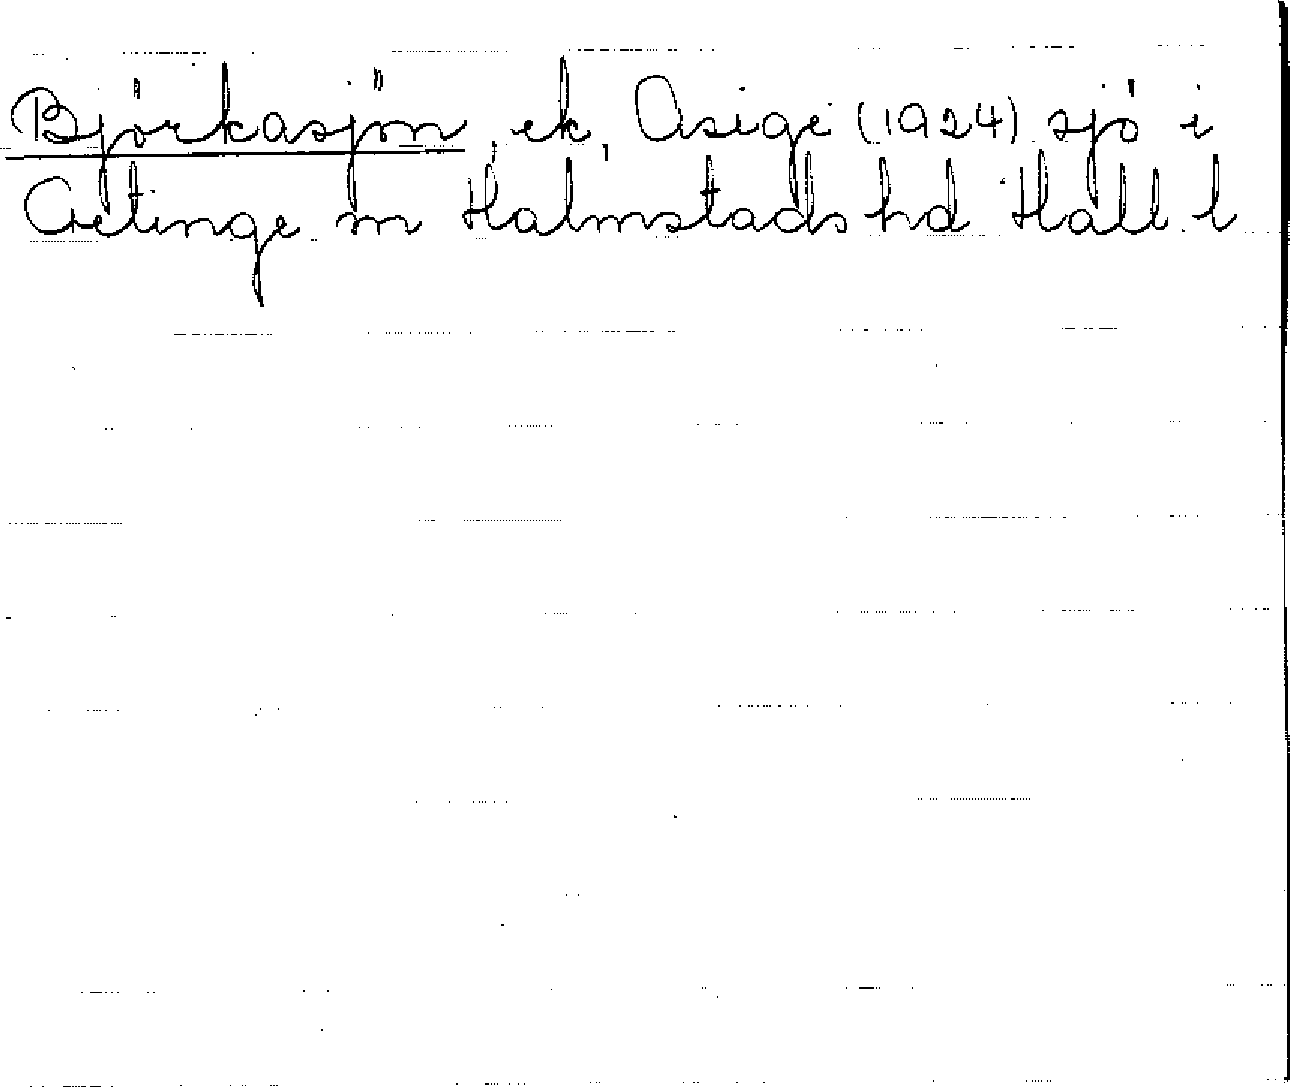 Björkasjön, ek, Asige (1924) sjö i
Getinge sn Halmstads hd Hall. l